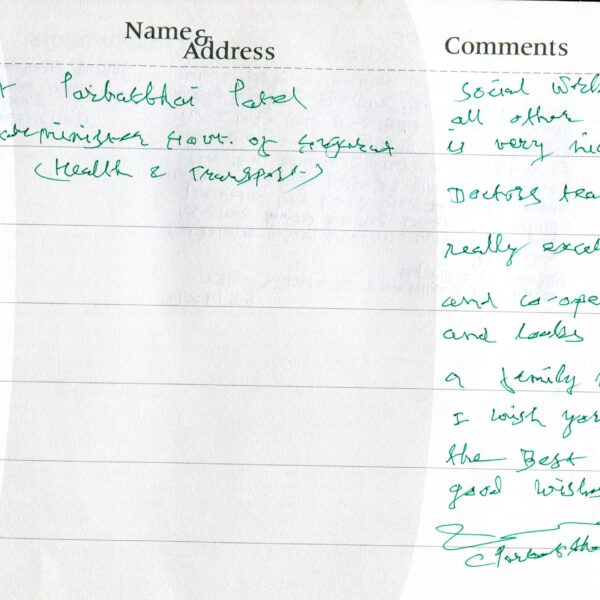 Name &
Address
Comments
Parbatbhai Patel
minister Govt. of Gujarat
(Health & Transport)
Social
all other
is very
Doctors
really
and co-ope
and looks
a family
I wish you
the Best
good wishes